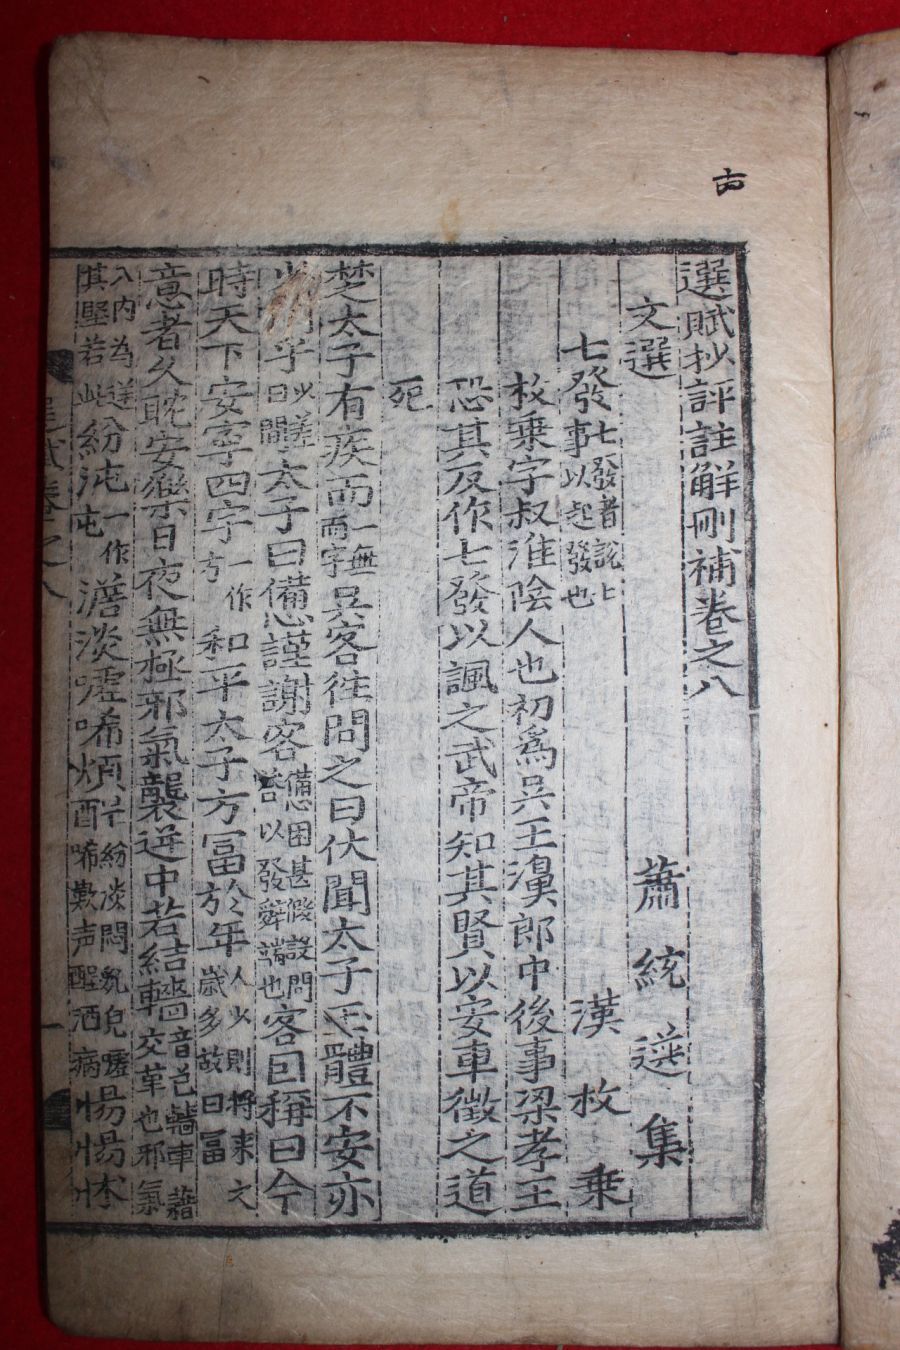 選賦抄評註解刪補卷之八
文選 蕭統選集
七發七發者說七事以起發也 漢枚乗
枚乗字叔淮陰人也初爲吴王濞郎中後事梁孝王
恐其反作七發以諷之武帝知其賢以安車徵之道
死
楚太子有疾而一無而字吴客往問之曰伏聞太子玉體不安亦
少間乎少差曰間太子曰憊謹謝客憊困甚假設問答以發辭端也客因稱曰今
時天下安寧四字一作方和平太子方冨於年人少則將来文歲多故曰冨
意者久耽安樂日夜無極邪氣襲逆中若結轖音色轖車藉交革也邪氣
入内為逆其堅若此紛沌一作屯澹淡嘘唏煩酲紛淡悶貌唏歎声酲酒病惕惕怵
選賦卷之八
一